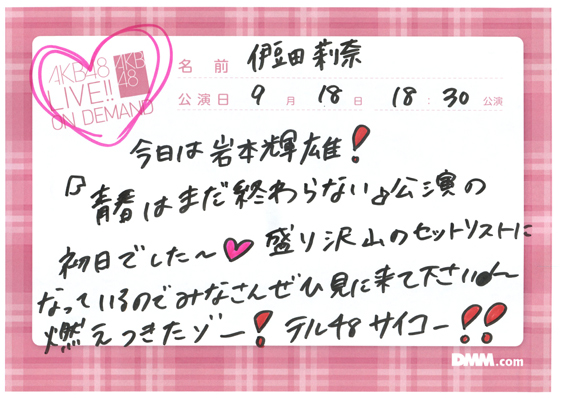 AKB48
LIVE!!
ON DEMAND
AKB
48
名前 伊豆田莉奈
公演日 9月 18日 18:30 公演
今日は岩本輝雄!
『青春はまだ終わらない』公演の
初日でした〜♥盛り沢山のセットリストに
なっているのでみなさんぜひ見に来て下さい♪〜
燃えつきたゾー!テル48サイコー!!
DMM.com